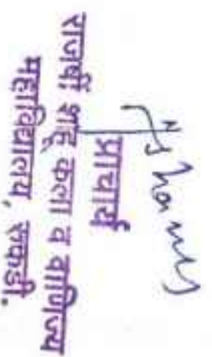 प्राचार्य
राजर्षी शाहू कला व वाणिज्य
महाविद्यालय, रुकडी.